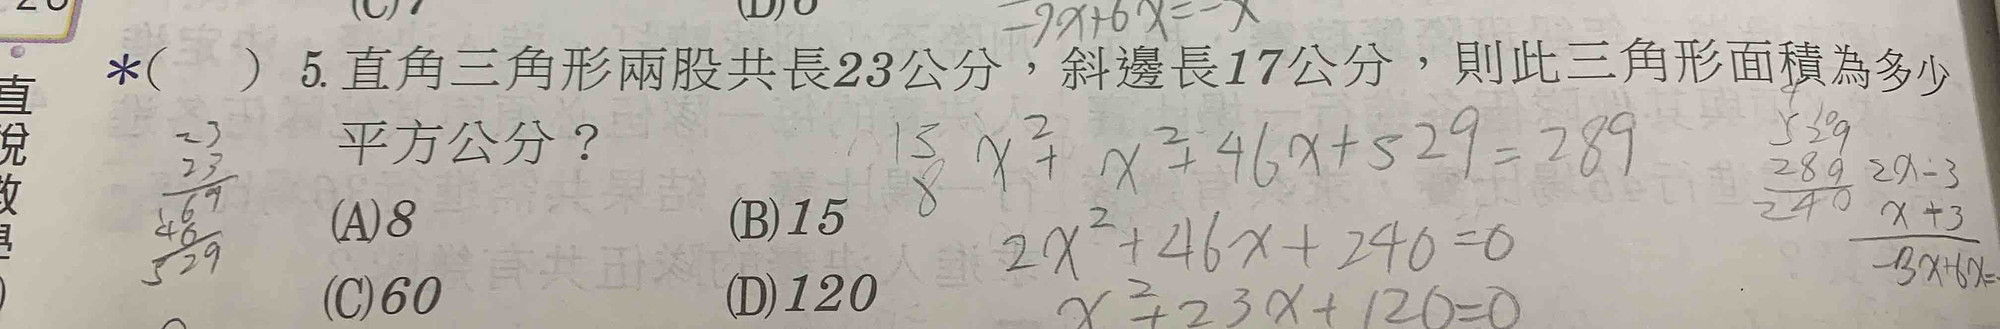 -9x+6x=-x
*( ) 5. 直角三角形兩股共長23公分,斜邊長17公分,則此三角形面積為多少
平方公分?
(A)8 (B)15
(C)60 (D)120
23
23
69
46
529
15
8
x²+x²+46x+529=289
2x²+46x+240=0
x²+23x+120=0
529
289
240
2x-3
x+3
-3x+6x=